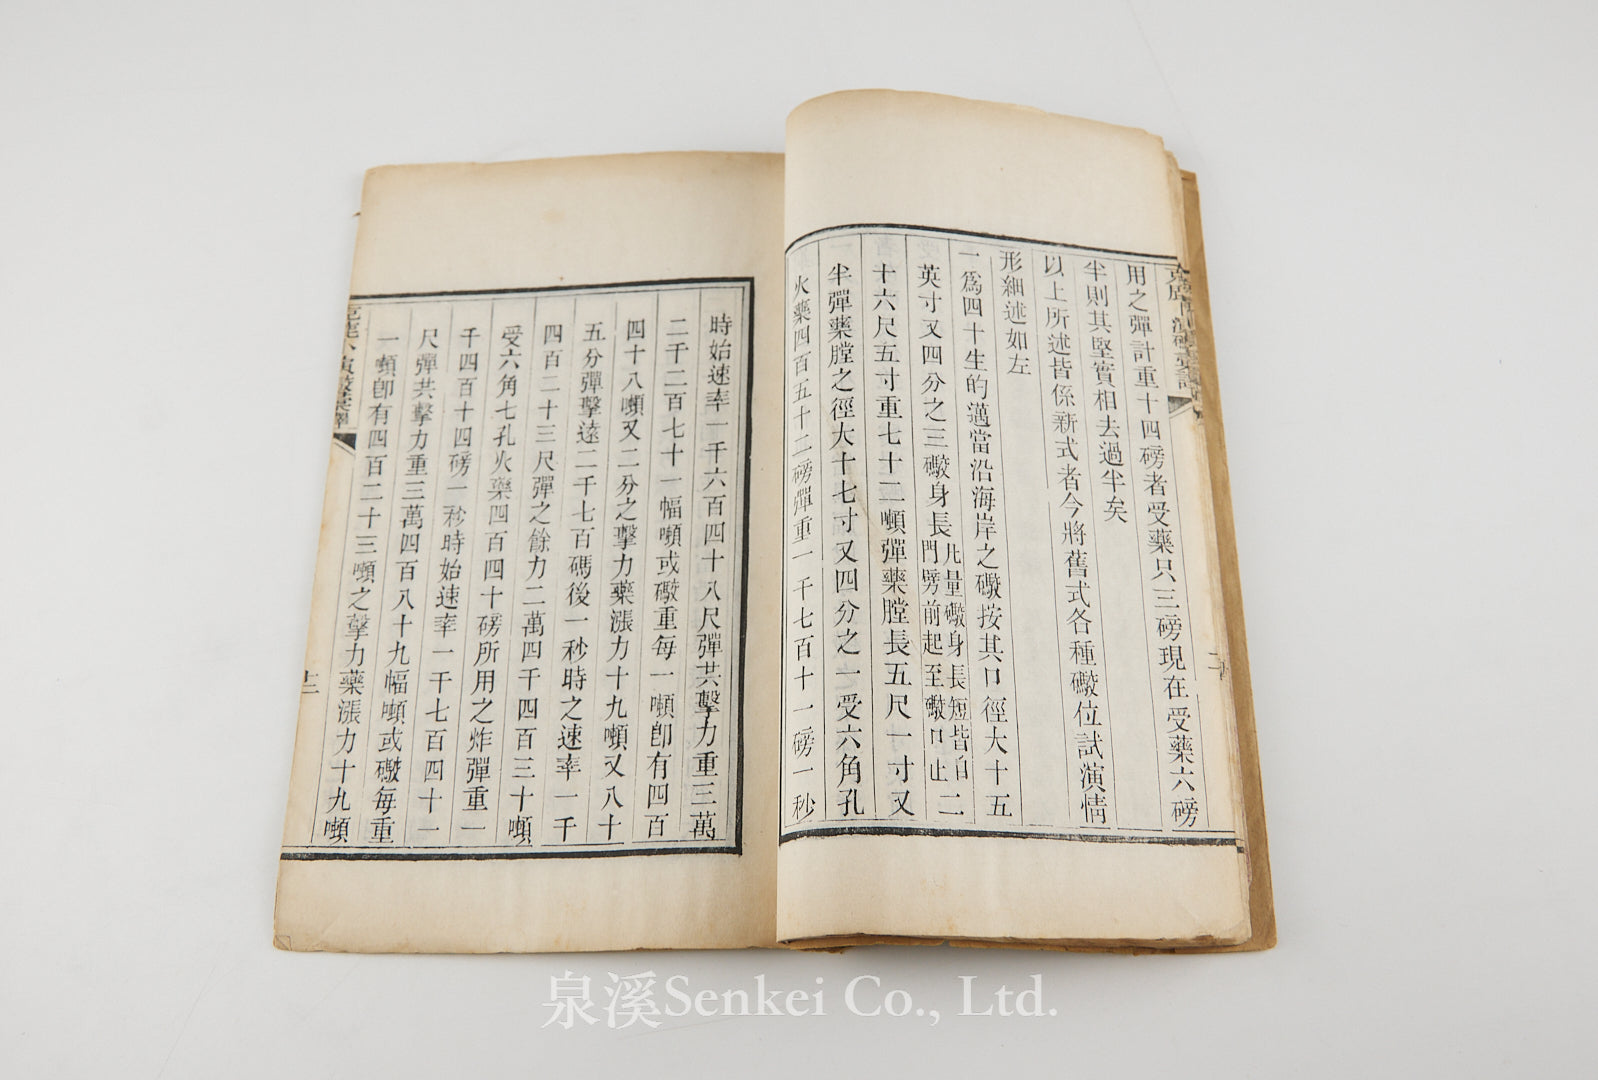 用之彈計重十四磅者受藥只三磅現在受藥六磅
半則其堅實相去過半矣
以上所述皆係新式者今將舊式各種礮位試演情
形細述如左
一爲四十生的邁當沿海岸之礮按其口徑大十五
英寸又四分之三礮身長凡量礮身長短皆自門劈前起至礮口止二
十六尺五寸重七十二噸彈藥膛長五尺一寸又
半彈藥膛之徑大十七寸又四分之一受六角孔
火藥四百五十二磅彈重一千七百十一磅一秒
時始速率一千六百四十八尺彈共擊力重三萬
二千二百七十一幅噸或礮重每一噸卽有四百
四十八噸又二分之擊力藥漲力十九噸又八十
五分彈擊遠二千七百碼後一秒時之速率一千
四百二十三尺彈之餘力二萬四千四百三十噸
受六角七孔火藥四百四十磅所用之炸彈重一
千四百十四磅一秒時始速率一千七百四十一
尺彈共擊力重三萬四百八十九幅噸或礮每重
一噸卽有四百二十三噸之擊力藥漲力十九噸
十二
泉溪Senkei Co., Ltd.